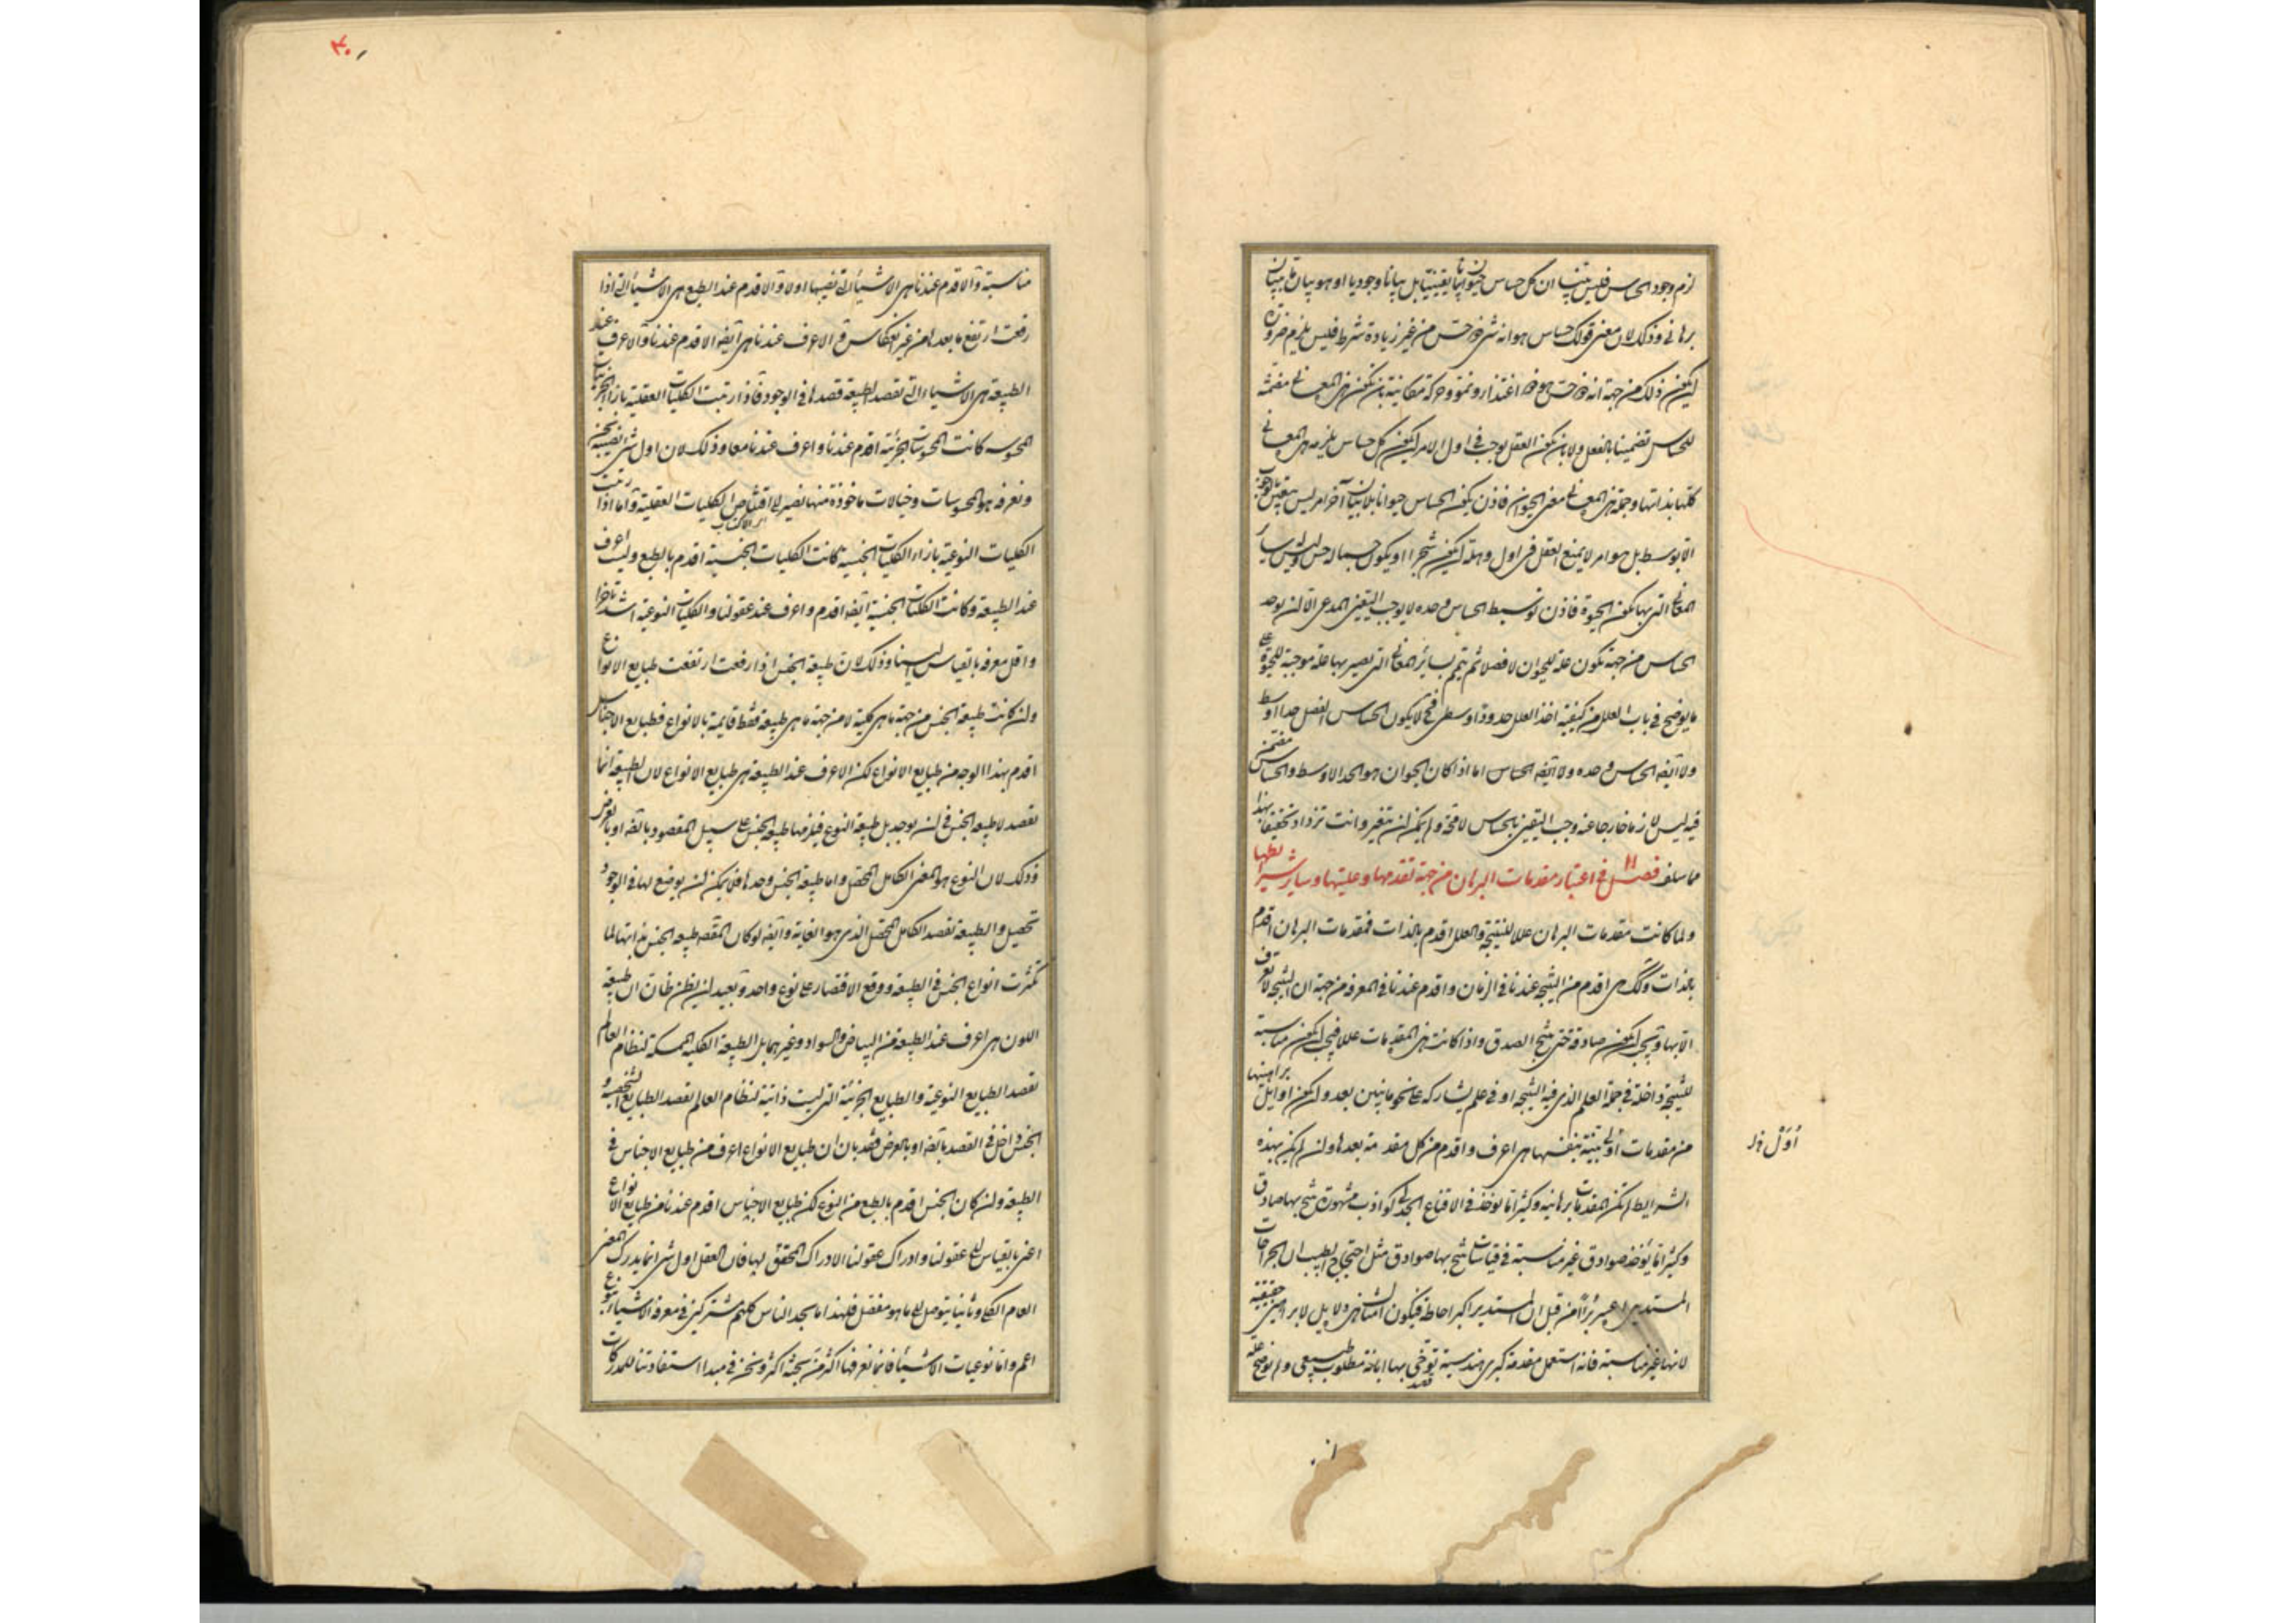 لزم وجود الحساس فليس بينا ان كل حساس حيوان بيانا يقينيا بل بيانا وجوديا او هو بيان ما ببيان
برهاني وذلك لان معنى قولك حساس هو انه شئ ذو حس من غير زيادة شرط فليس يلزم ضرورة
ان يكون ذلك من جهة انه ذو حس هو ذو اغتذاء ونمو وحركة مكانية بان يكون هذه المعاني مضمنة
للحساس تضمينا بالفعل ولا بان يكون العقل يوجب في اول الامر ان يكون كل حساس يلزمه هذه المعاني
كلها بذاتها وجملة هذه المعاني معنى الحيوان فاذن كون الحساس حيوانا بلا بيان آخر امر ليس بيقين
الا بوسط بل هو امر لا يمنع العقل في اول وهلة ان يكون شجرا او يكون جسما له حس وليس له سائر
المعاني التي بها يكون الحيوة فاذن توسيط الحساس وحده لا يوجب اليقين المدعى الا ان يوجد
الحساس من جهة تكون علة للحيوان لا فصلا ثم يتم بسائر المعاني التي يصير بها علة موجبة للحيوة على
ما يوضح في باب العلل من كيفية اخذ العلل حدودا وسطى فح لا يكون الحساس الفصل حدا اوسط
ولا ايضا الحساس وحده ولا ايضا الحساس اما اذا كان الحيوان هو الحد الاوسط والحساس مضمن
فيه ليس لازما خارجا عنه وجب اليقين بالحساس لا محة ولم يمكن ان يتغير وانت تزداد تحقيقا لهذا
مما سلف فصل ١١ في اعتبار مقدمات البرهان من جهة تقدمها وعليتها وساير شرايطها
ولما كانت مقدمات البرهان عللا للنتيجة والعلل اقدم بالذات فمقدمات البرهان اقدم
بالذات وكذلك هي اقدم من النتيجة عندنا في الزمان واقدم عندنا في المعرفة من جهة ان النتيجة لا تعرف
الا بها ويجب ان يكون صادقة حتى ينتج الصدق واذا كانت هذه المقدمات عللا فيجب ان يكون مناسبة
للنتيجة داخلة في جملة العلم الذي فيه النتيجة او في علم يشاركه على نحو ما نبين بعد وان يكون اوايل براهينها
من مقدمات اولى بينة بنفسها هي اعرف واقدم من كل مقدمة بعدها ولن لم يكن بهذه
الشرايط لم تكن المقدمات برهانية وكثيرا ما يؤخذ في الاقناع الجدلي كواذب مشهورة ينتج بها صادق
وكثيرا ما يؤخذ صوادق غير مناسبة في قياسات ينتج بها صوادق مثل احتجاج الطبيب ان الجراحات
المستديرة اعسر برءا من قبل ان المستدير اكبر احاطة فيكون امثال هذه دلايل لا براهين حقيقية
لانها غير مناسبة فانه استعمل مقدمة كبرى هندسية توخى بها ابانة مطلوب طبيعي ولم توضح علة
قصد
اول خ ل
مناسبة والاقدم عندنا هي الاشياء التي نصيبها اولا والاقدم عند الطبع هي الاشياء التي اذا
رفعت ارتفع ما بعدها من غير انعكاس والاعرف عندنا هي ايضا الاقدم عندنا والاعرف عند
الطبيعة هي الاشياء التي تقصد الطبيعة قصدها في الوجود فاذا رتبت الكليات العقلية بازاء الجزئيات
المحسوسة كانت المحسوسات الجزئية اقدم عندنا واعرف عندنا معا وذلك لان اول شئ نصيبه نحن
ونعرفه هو المحسوسات وخيالات ماخوذة منها نصير الى اقتناص الكليات العقلية واما اذا رتبت
اي الاكتساب
الكليات النوعية بازاء الكليات الجنسية كانت الكليات الجنسية اقدم بالطبع وليست اعرف
عند الطبيعة وكانت الكليات الجنسية ايضا اقدم واعرف عند عقولنا والكليات النوعية اشد تاخرا
واقل معرفة بالقياس الينا وذلك لان طبيعة الجنس اذا رفعت ارتفعت طبايع الانواع
ولن كانت طبيعة الجنس من جهة ما هي كلية لا من جهة ما هي طبيعة فقط قايمة بالانواع فطبايع الاجناس
اقدم بهذا الوجه من طبايع الانواع لكن الاعرف عند الطبيعة هي طبايع الانواع لان الطبيعة انما
تقصد لا طبيعة الجنس في ان يوجد بل طبيعة النوع فيلزمها طبيعة الجنس على سبيل المقصود بالضرورة او بالعرض
وذلك لان النوع هو المعنى الكامل المحصل واما طبيعة الجنس وحدها فلا يمكن ان يوضع لها في الوجود
تحصيل والطبيعة تقصد الكامل المحصل الذي هو الغاية وايضا لو كان المقصد طبيعة الجنس بذاتها لما
تكثرت انواع الجنس في الطبيعة ووقع الاقتصار على نوع واحد وبعيد ان يظن ظان ان طبيعة
اللون هي اعرف عند الطبيعة من البياض والسواد وغيرهما بل الطبيعة الكلية الممسكة لنظام العالم
تقصد الطبايع النوعية والطبايع الجزئية التي ليست ذاتية لنظام العالم تقصد الطبايع الشخصية و
الجنس داخل في القصد بالضرورة او بالعرض فقد بان ان طبايع الانواع اعرف من طبايع الاجناس في
الطبيعة ولن كان الجنس اقدم بالطبع من النوع لكن طبايع الاجناس اقدم عندنا من طبايع الانواع
اعني بالقياس الى عقولنا وادراك عقولنا الادراك المحقق لها فان العقل اول شئ انما يدرك المعنى
العام الكلي وثانيا يتوصل الى ما هو مفصل فلهذا ما نجد الناس كلهم مشتركين في معرفة الاشياء بنوع
اعم واما نوعيات الاشياء فانما نعرفها اكثر من بحثه اكثر ونحن في مبدا استفادتنا للمدركات